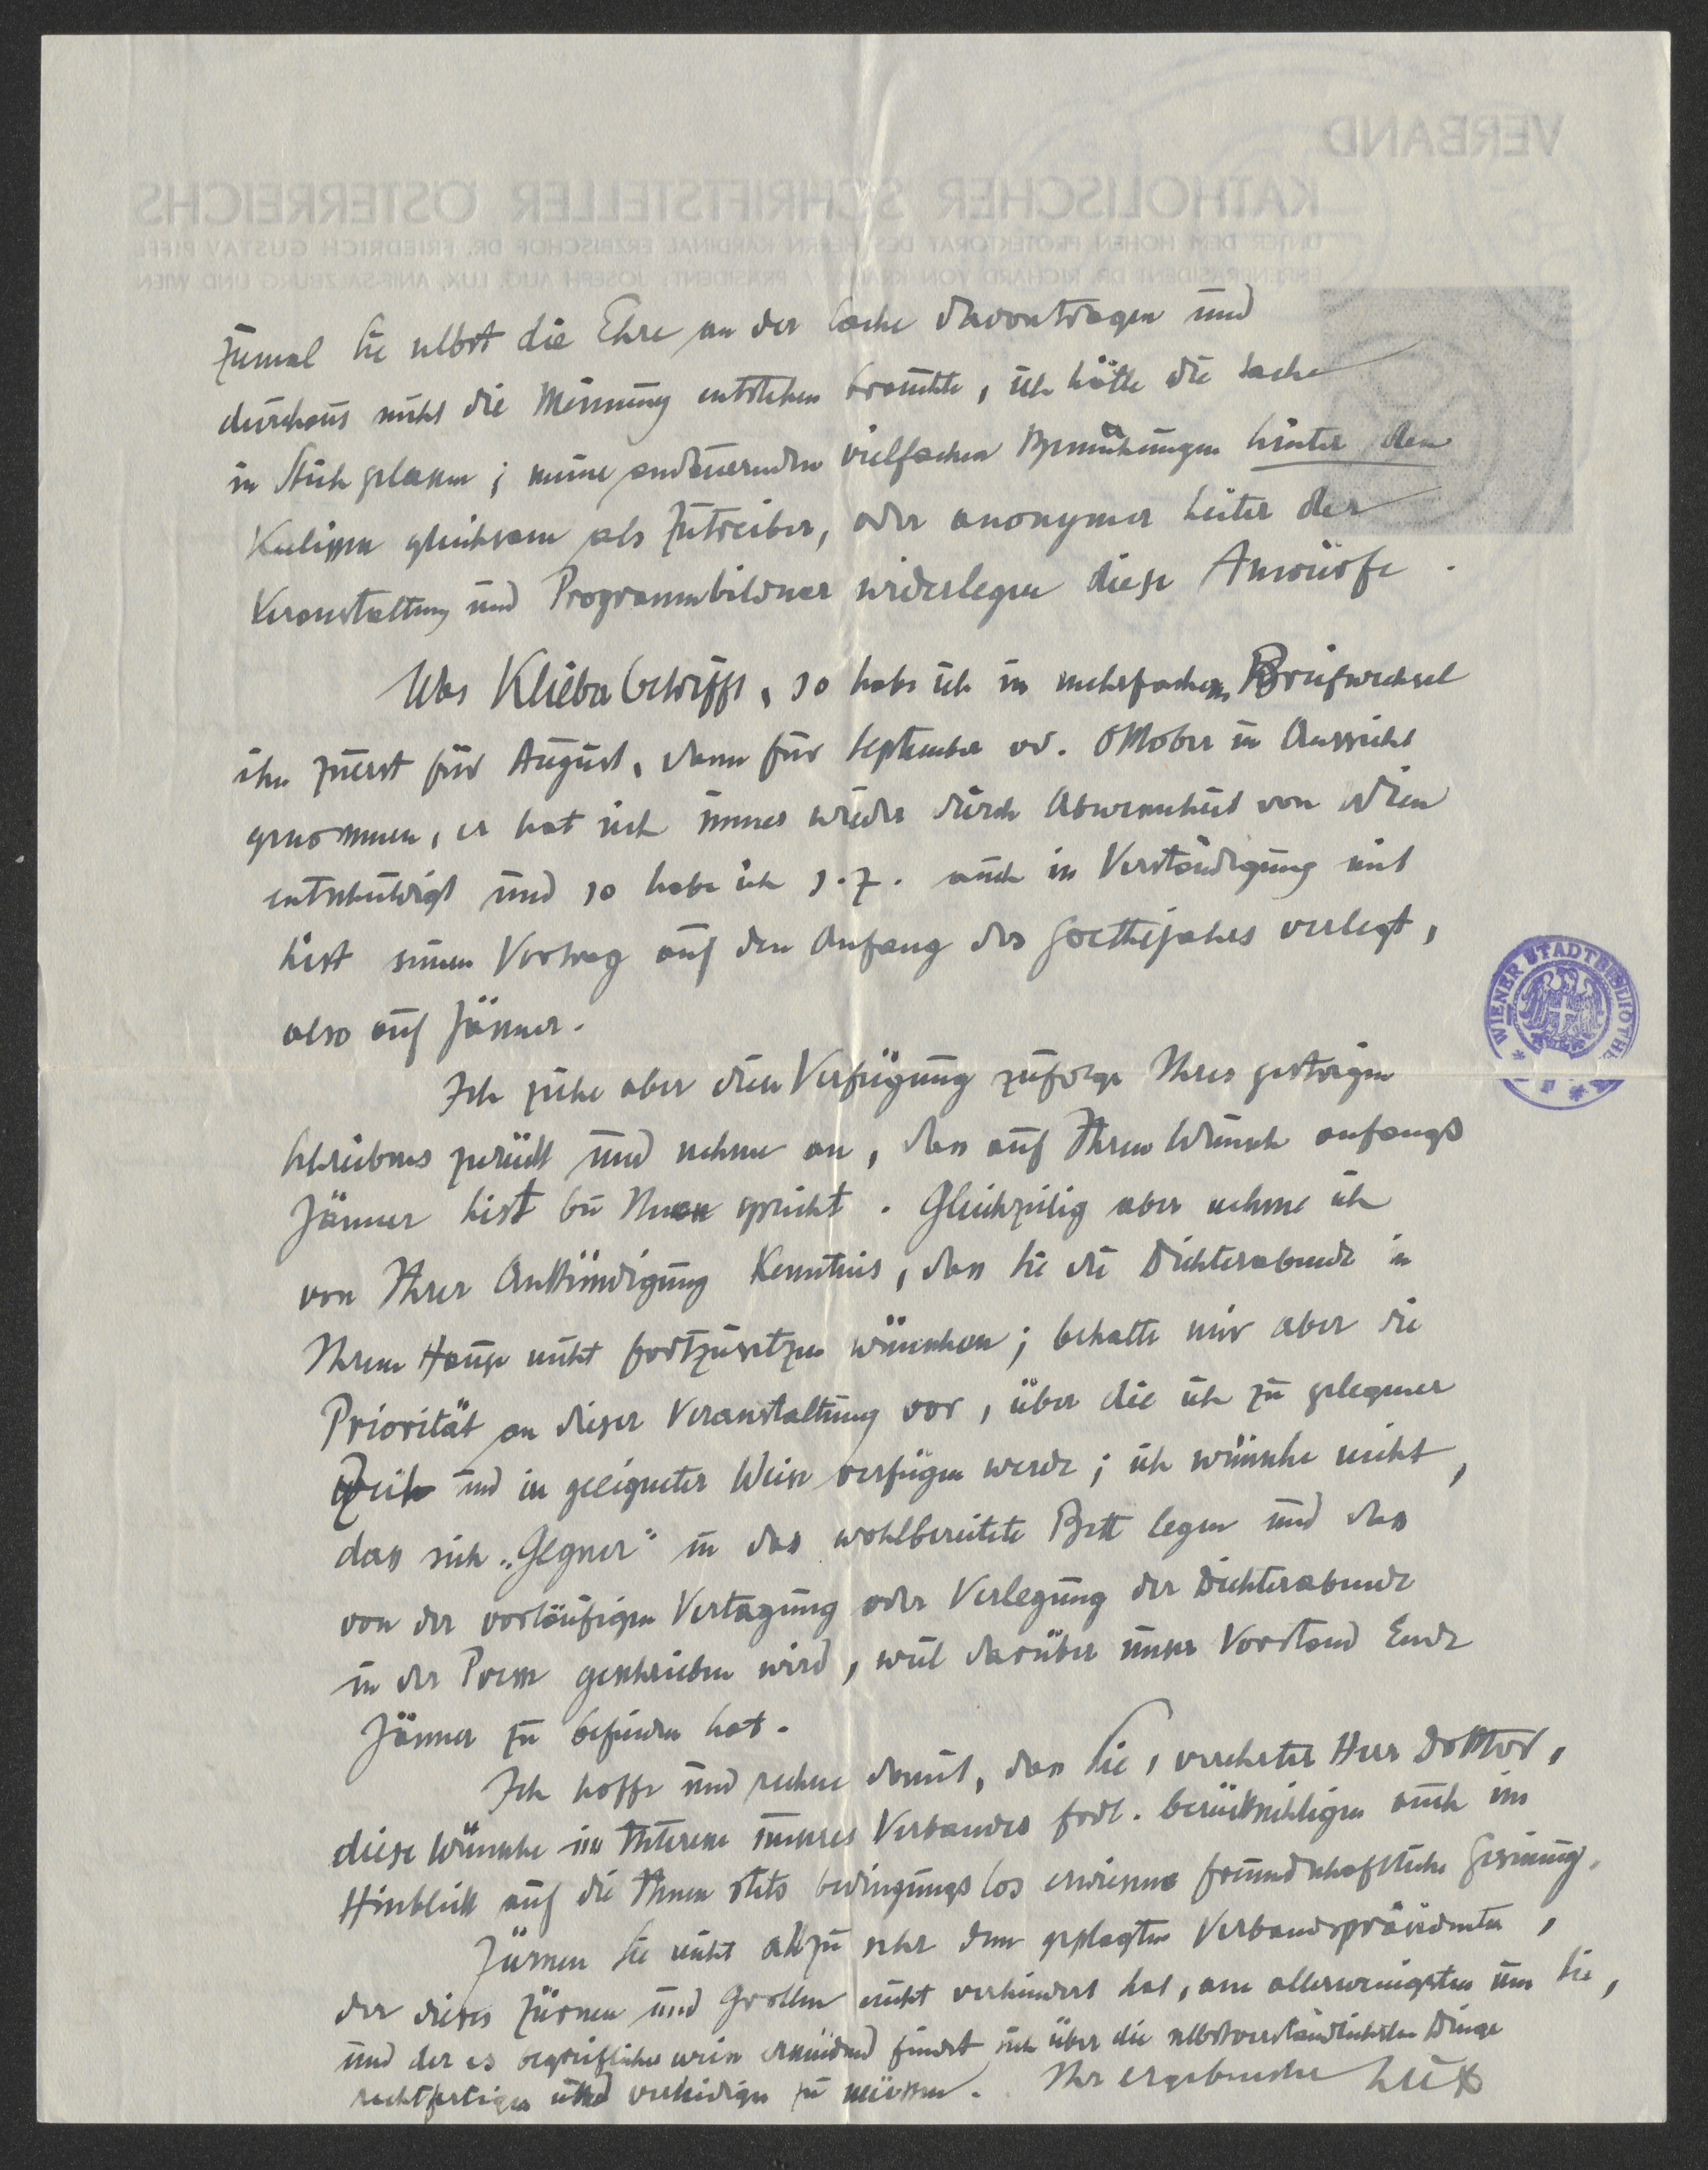 zumal Sie selbst die Ehre an der Sache davontragen und
durchaus nicht die Meinung entstehen brauchte, ich hätte die Sache
in Stich gelassen; meine andauernden vielfachen Bemühungen hinter den
Kulissen gleichsam als Zutreiber, oder anonymer Leiter der
Veranstaltung und Programmbildner widerlegen diese Anwürfe.
Was Klieba betrifft, so habe ich in mehrfachem Briefwechsel
ihn zuerst für August, dann für September od. Oktober in Aussicht
genommen, er hat sich immer wieder durch Abwesenheit von Wien
entschuldigt und so habe ich s. Z. auch in Verständigung mit
List seinen Vortrag auf den Anfang des Goethejahrs verlegt,
also auf Jänner.
Ich ziehe aber diese Verfügung zufolge Ihres gestrigen
Schreibens zurück und nehme an, dass auf Ihren Wunsch anfangs
Jänner List bei Ihnen spricht. Gleichzeitig aber nehme ich
von Ihrer Ankündigung Kenntnis, dass Sie die Dichterabende in
Ihrem Hause nicht fortzusetzen wünschen; behalte mir aber die
Priorität an dieser Veranstaltung vor, über die ich zu gelegener
Zeit und in geeigneter Weise verfügen werde; ich wünsche nicht,
dass sich „Gegner" in das wohlbereitete Bett legen und dass
von der vorläufigen Vertagung oder Verlegung der Dichterabende
in der Presse geschrieben wird, weil darüber unser Vorstand Ende
Jänner zu befinden hat.
Ich hoffe und rechne damit, dass Sie, verehrter Herr Doktor,
diese Wünsche im Interesse unseres Verbandes frdl. berücksichtigen auch im
Hinblick auf die Ihnen stets bedingungslos erwiesene freundschaftliche Gesinnung.
Zürnen Sie nicht allzu sehr dem geplagten Verbandspräsidenten,
der dieses Zürnen und Grollen nicht verhindert hat, am allerwenigsten um Sie,
und der es begreiflicher weise ermüdend findet sich über die selbstverständlichsten Dinge
rechtfertigen und verteidigen zu müssen. Ihr ergebenster Lux
VERBAND
KATHOLISCHER SCHRIFTSTELLER ÖSTERREICHS
UNTER DEM HOHEN PROTEKTORAT DES HERRN KARDINAL ERZBISCHOF DR. FRIEDRICH GUSTAV PIFFL
EHRENPRÄSIDENT DR. RICHARD VON KRALIK / PRÄSIDENT: JOSEPH AUG. LUX, ANIF-SALZBURG UND WIEN
WIENER STADTBIBLIOTHE